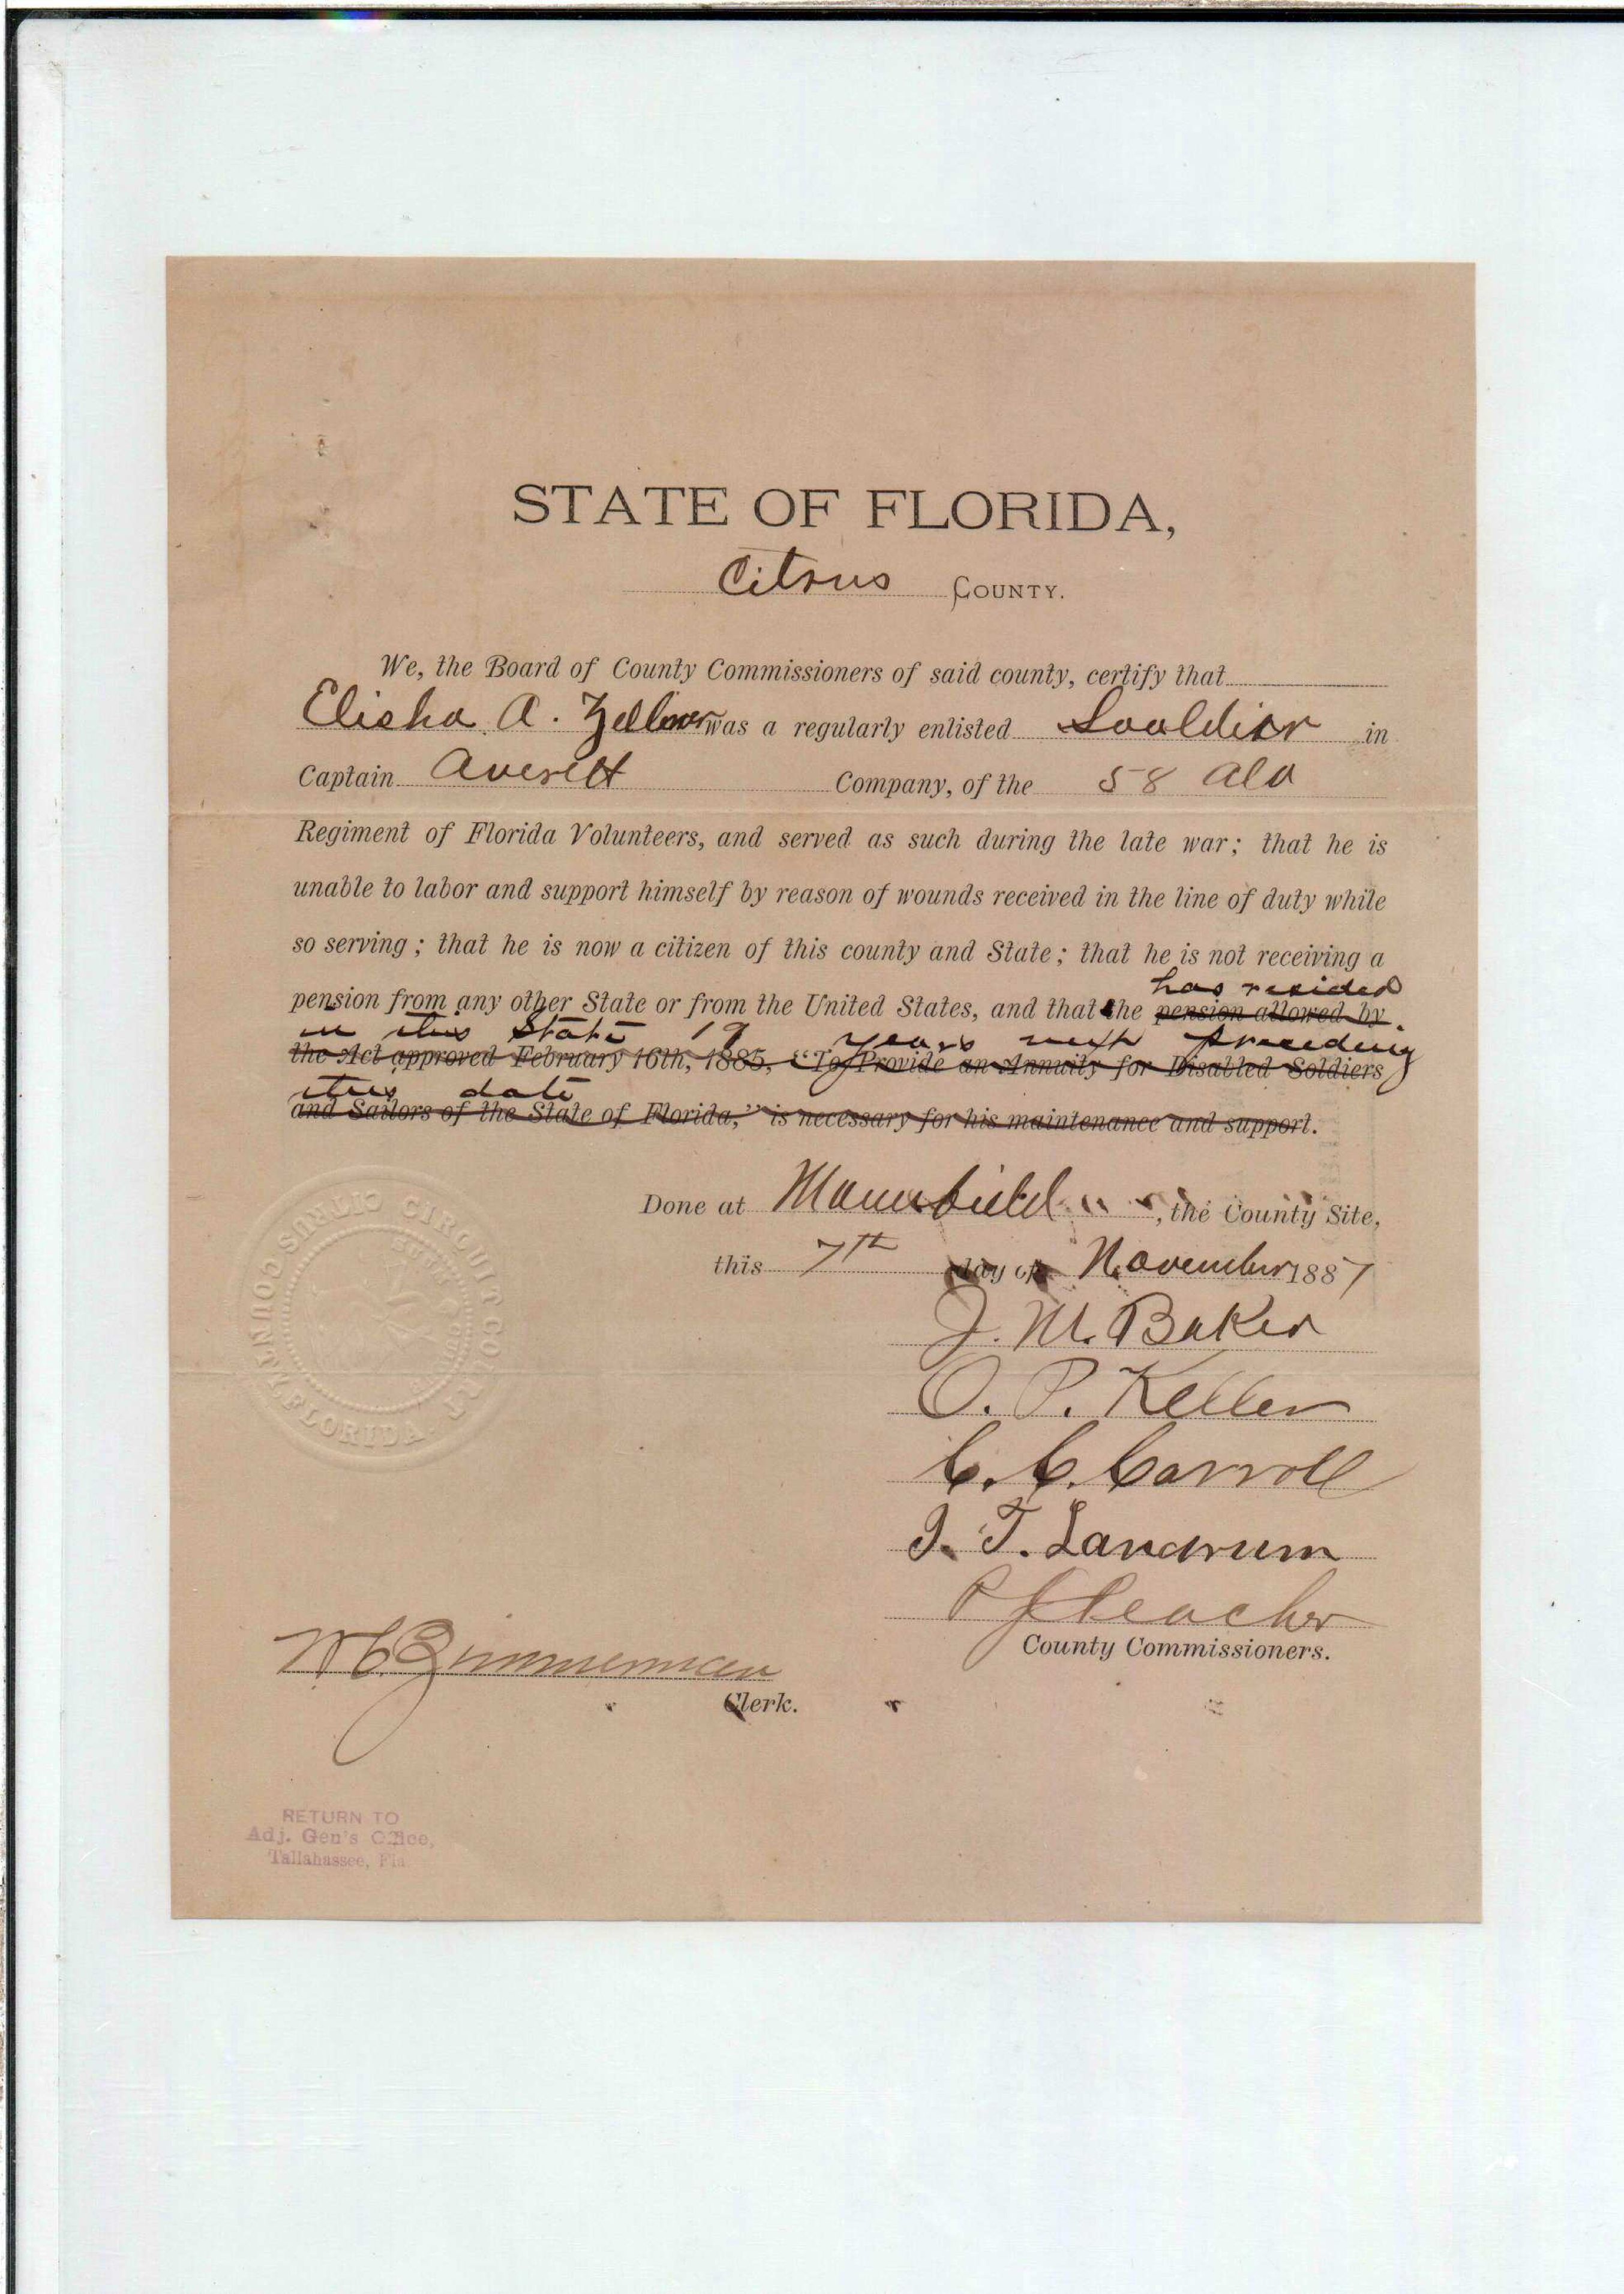 STATE OF FLORIDA,
Citrus COUNTY.
We, the Board of County Commissioners of said county, certify that
Elisha A. Zellner was a regularly enlisted Souldier in
Captain Averett Company, of the 58 Ala
Regiment of Florida Volunteers, and served as such during the late war; that he is
unable to labor and support himself by reason of wounds received in the line of duty while
so serving; that he is now a citizen of this county and State; that he is not receiving a
has resided
pension from any other State or from the United States, and that the pension allowed by
in this State 19 years next preceding
the Act approved February 16th, 1885, "To Provide an Annuity for Disabled Soldiers
this date
and Sailors of the State of Florida," is necessary for his maintenance and support.
Done at Mannfield, the County Site,
this 7th day of November 1887
J. M. Baker
O. P. Keller
C. C. Carroll
J. T. Landrum
County Commissioners.
W C Zimmerman
Clerk.
CITRUS CIRCUIT COURT
COUNTY, FLORIDA.
RETURN TO
Adj. Gen's Office,
Tallahassee, Fla